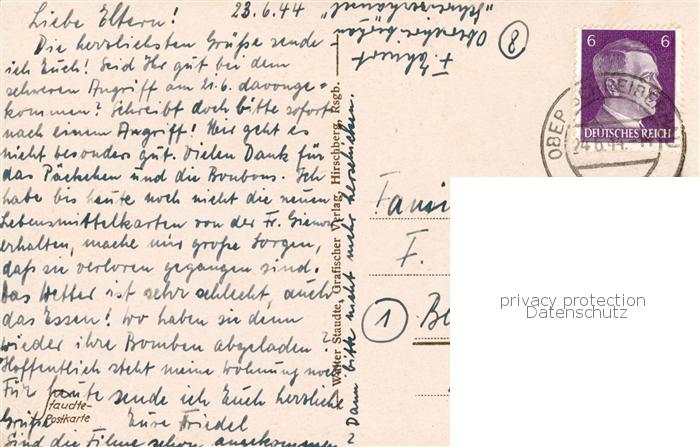 Liebe Eltern! 23.6.44
Die herzlichsten Grüße sende
ich Euch! Seid Ihr gut bei dem
schweren Angriff am 21.6. davonge-
kommen? Schreibt doch bitte sofort
nach einem Angriff! Mir geht es
nicht besonders gut. Vielen Dank für
das Päckchen und die Bonbons. Ich
habe bis heute noch nicht die neuen
Lebensmittelkarten von der Fr.
erhalten, mache mir große Sorgen,
daß sie verloren gegangen sind.
Das Wetter ist sehr schlecht, auch
das Essen! Wo haben sie denn
wieder ihre Bomben abgeladen?
Hoffentlich steht meine Wohnung noch
Für heute sende ich Euch herzliche
Grüße Eure Friedel
Sind die Filme schon angekommen
? Dann bitte nicht mehr herschicken.
Staudte-
Postkarte
Walter Staudte, Grafischer Verlag, Hirschberg, Rsgb.
F.
Oberschreiberhau
8
6 6
DEUTSCHES REICH
OBER SCHREIBERHAU
24.6.44
F.
1
privacy protection
Datenschutz